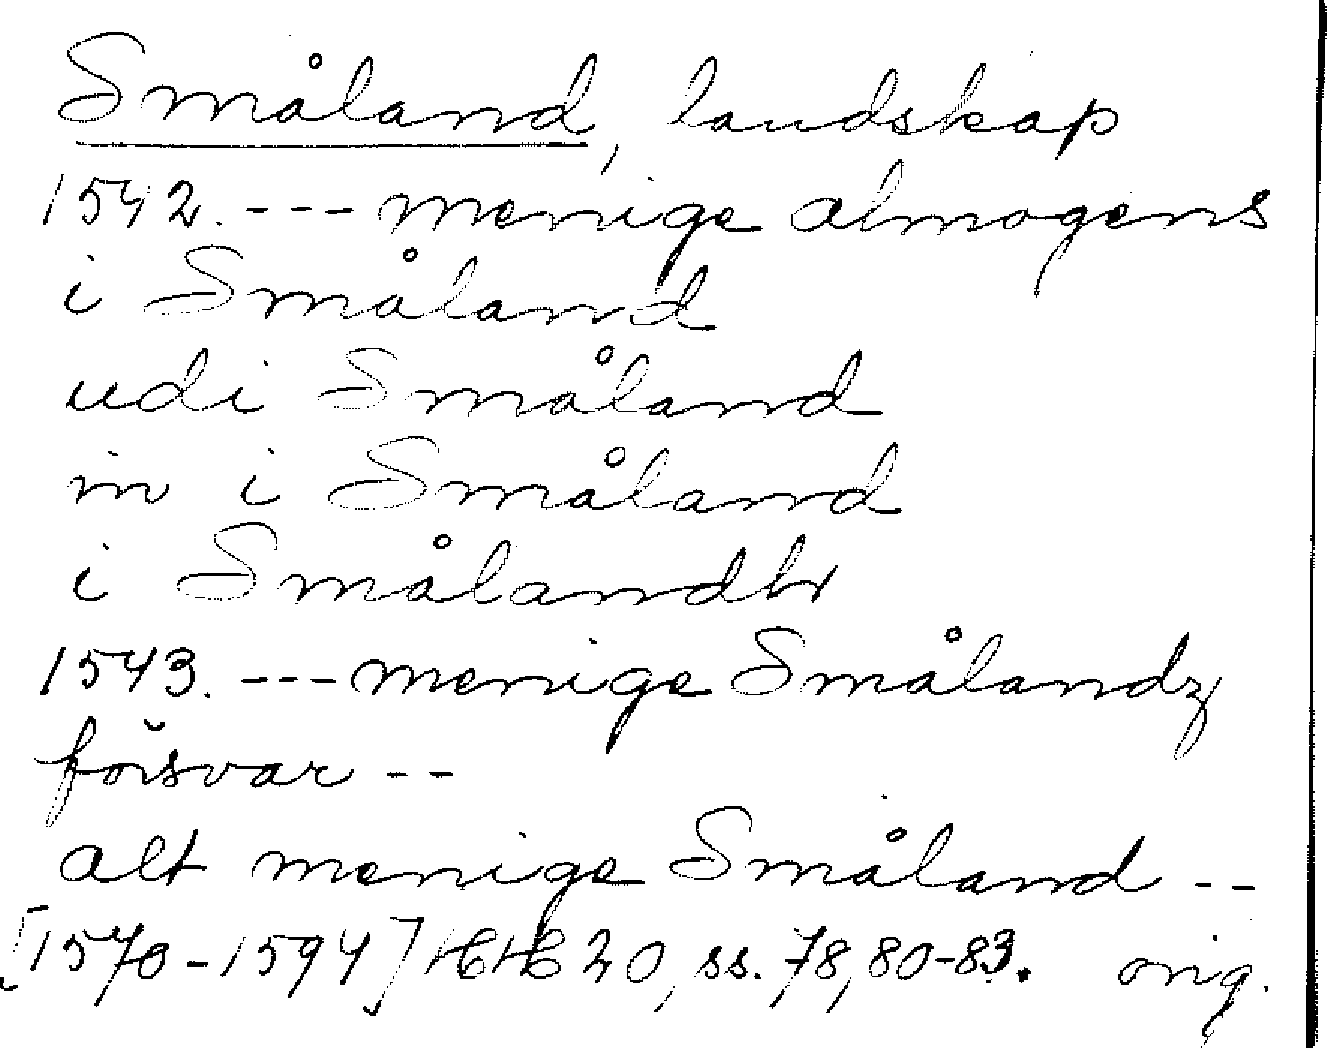 Småland, landskap
1542. --- menige almogens
i Småland
udi Småland
in i Småland
i Smålandh
1543. --- menige Smålandz
försvar --
alt menige Småland --
[1570-1594] HH 20, ss. 78, 80-83. orig.